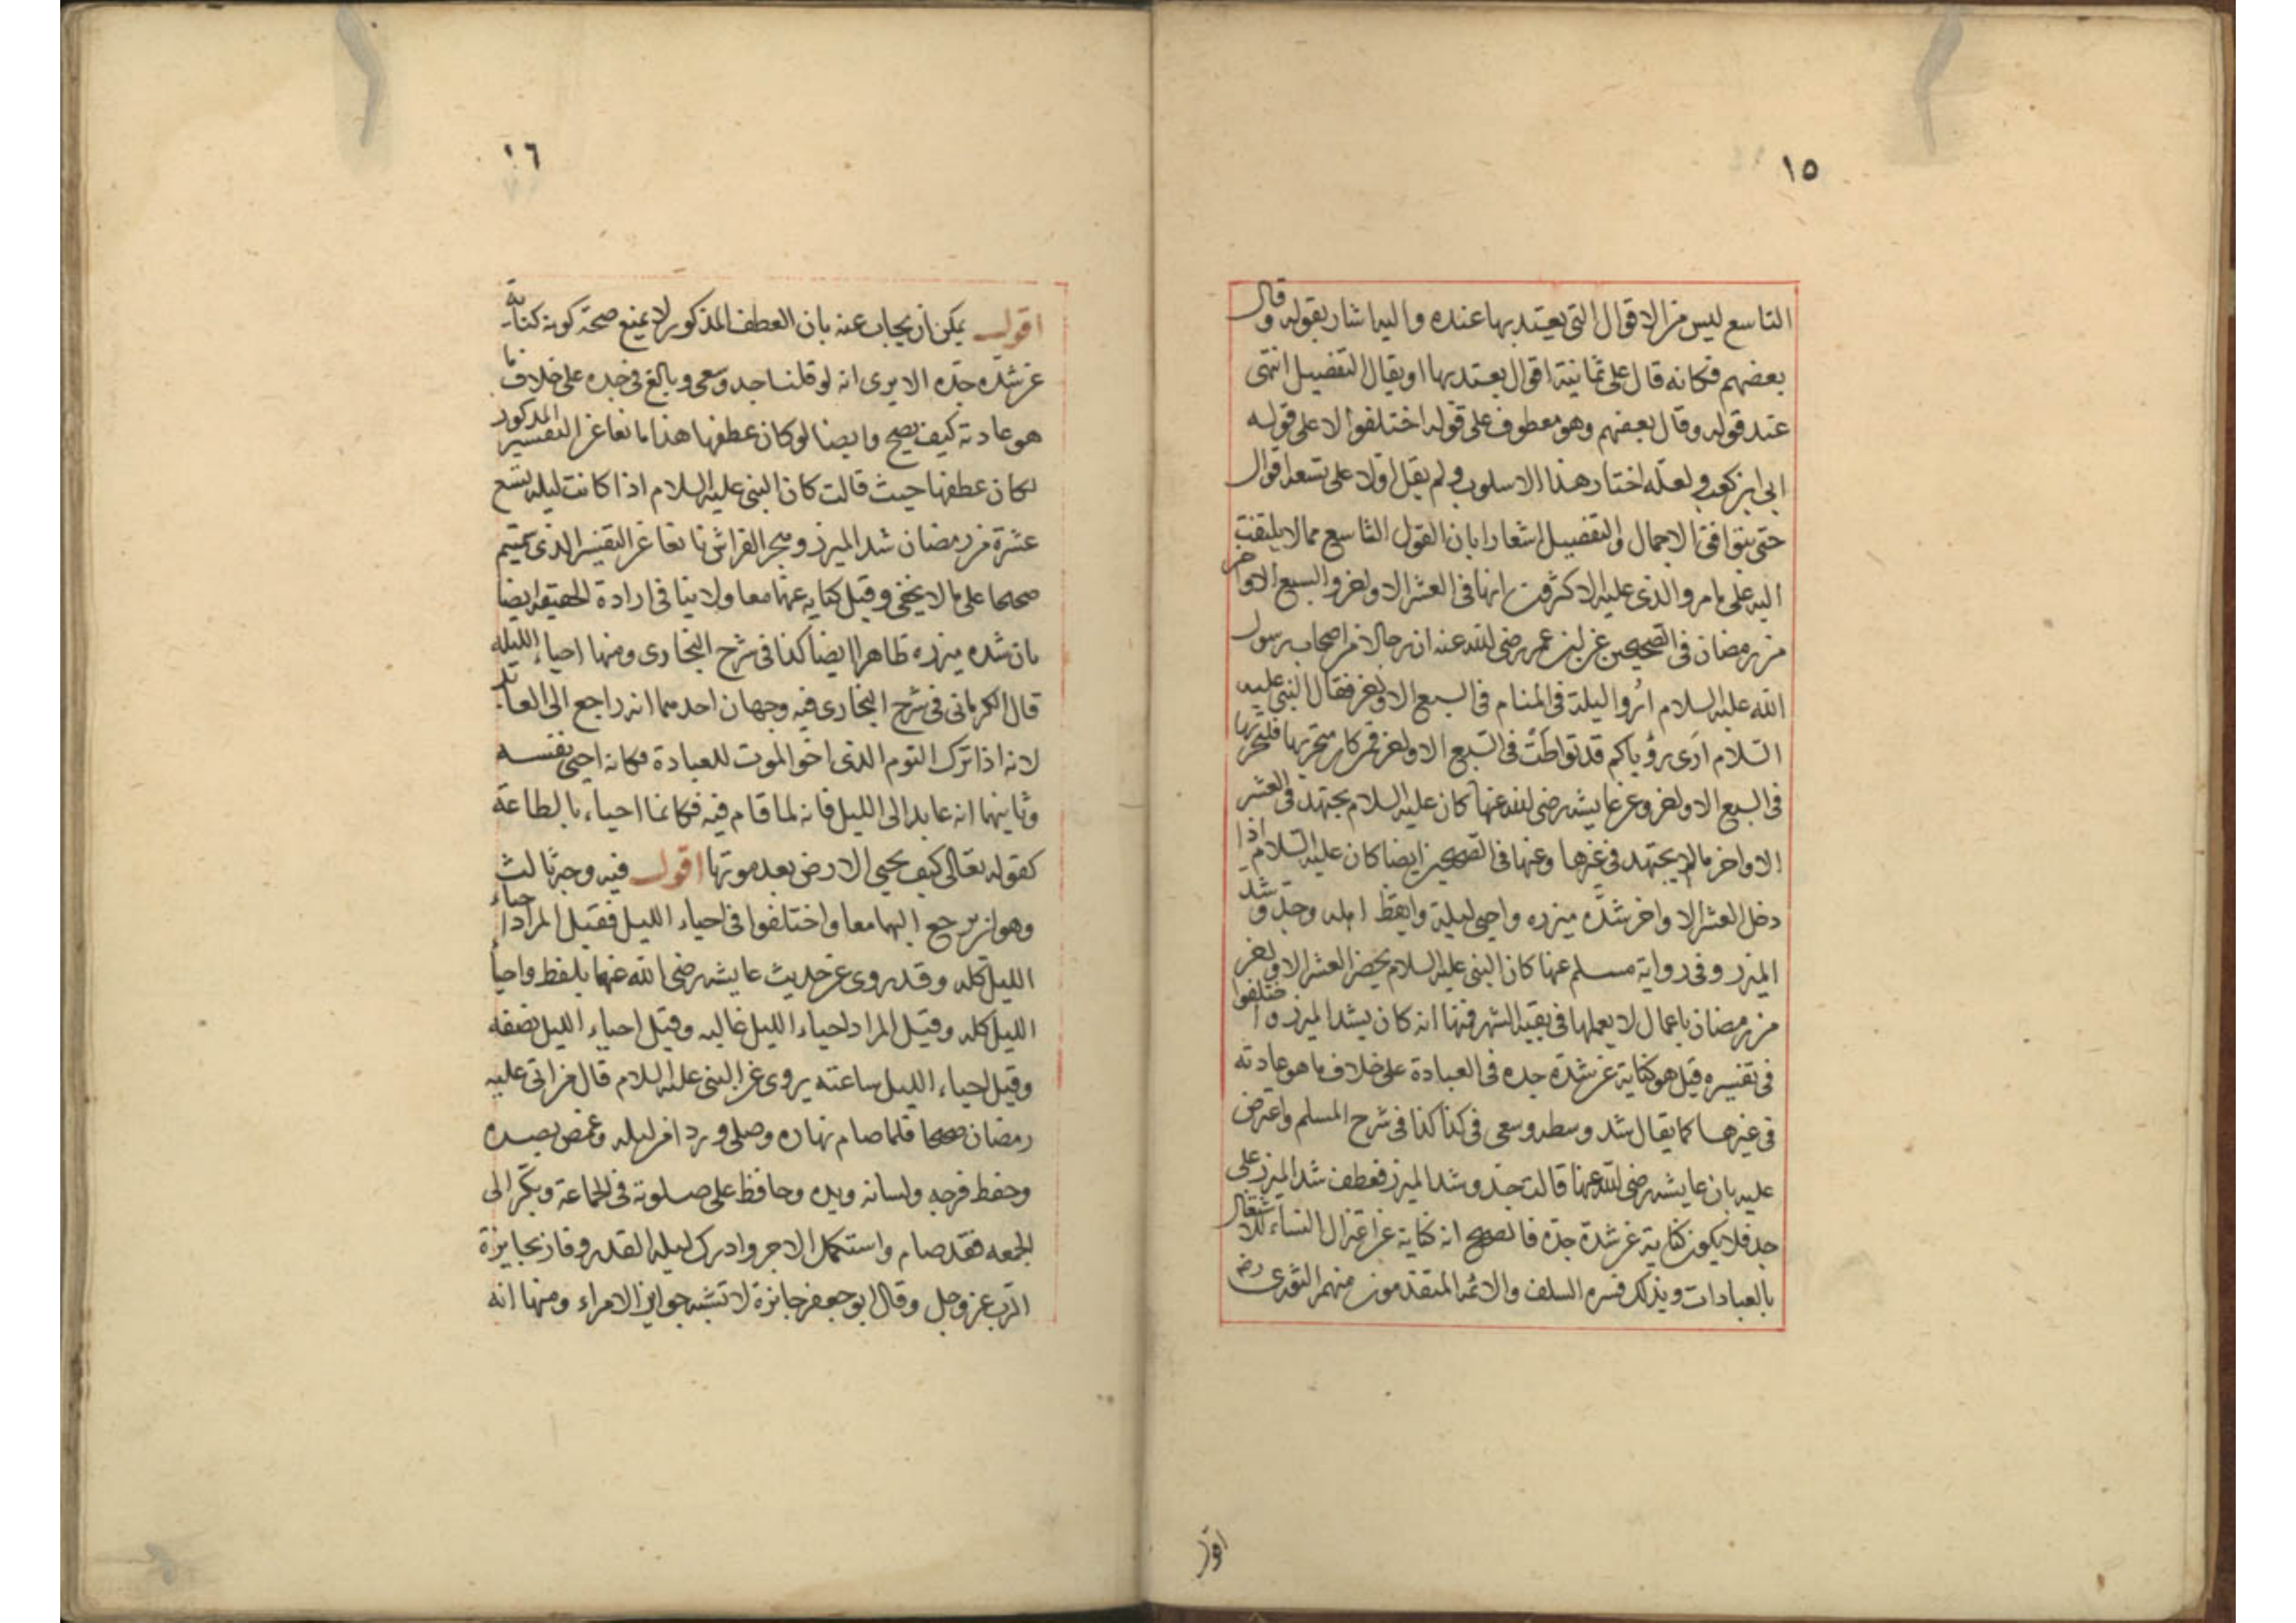 ١٥
التاسع ليس من الاقوال التى يعتد بها عنده واليه اشار بقوله وقال
بعضهم فكانه قال على ثمانية اقوال يعتد بها او يقال التفصيل انتهى
عند قوله وقال بعضهم وهو معطوف على قوله اختلفوا لا على قوله
ابى ابن كعب ولعله اختار هذا الاسلوب ولم يقل اولا على تسعة اقوال
حتى يتوافق الاجمال والتفصيل اشعارا بان القول التاسع مما لا يلتفت
اليه على ما مر والذى عليه الاكثرون انها فى العشر الاواخر والسبع الاواخر
من رمضان فى الصحيحين عن ابن عمر رضى الله عنه ان رجالا من اصحاب رسول
الله عليه السلام اروا ليلة فى المنام فى السبع الاواخر فقال النبى عليه
السلام ارى رؤياكم قد تواطت فى السبع الاواخر فمن كان متحريها فليتحرها
فى السبع الاواخر وعن عايشه رضى الله عنها كان عليه السلام يجتهد فى العشر
الاواخر ما لا يجتهد فى غيرها وعنها فى الصحيحين ايضا كان عليه السلام اذا
دخل العشر الاواخر شد ميزره واحيى ليلة وايقظ اهله وجد وشد
الميزر وفى رواية مسلم عنها كان النبى عليه السلام يخص العشر الاواخر
من رمضان باعمال لا يعملها فى بقية الشهر فمنها انه كان يشد الميزر واختلفوا
فى تفسيره قيل هو كناية عن شدة جده فى العبادة على خلاف ما هو عادته
فى غيرها كما يقال شد وسطه وسعى فى كذا كذا فى شرح المسلم واعترض
عليه بان عايشه رضى الله عنها قالت جد وشد الميزر فعطف شد الميزر على
جد فلا يكون كناية عن شدة جده فالصحيح انه كناية عن اعتزال النساء للاشتغال
بالعبادات وبذلك فسره السلف والائمه المتقدمون منهم الثورى رض
اقول
١٦
اقول يمكن ان يجاب عنه بان العطف المذكور لا يمنع صحة كونه كناية
عن شده جده الا يرى انه لو قلنا جد وسعى وبالغ فى جده على خلاف ما
هو عادته كيف يصح وايضا لو كان عطفها هذا مانعا عن التفسير المذكور
لكان عطفها حيث قالت كان النبى عليه السلام اذا كانت ليلة تسع
عشرة من رمضان شد الميزر وهجر الفراش مانعا عن التفسير الذى
صححا على ما لا يخفى وقيل كنايه عنهما معا ولا ينافى ارادة الحقيقه ايضا
بان شده ميزره ظاهرا ايضا كذا فى شرح البخارى ومنها احياء الليله
قال الكرمانى فى شرح البخارى فيه وجهان احدهما انه راجع الى العابد
لانه اذا ترك النوم الذى اخو الموت للعبادة فكانه احيى نفسه
وثانيهما انه عايد الى الليل فانه لما قام فيه فكانما احياء بالطاعة
كقوله تعالى كيف يحيى الارض بعد موتها اقول فيه وجه ثالث
وهو ان يرجع اليهما معا واختلفوا فى احياء الليل فقيل المراد احياء
الليل كله وقد روى عن حديث عايشه رضى الله عنهما بلفظ واحيا
الليل كله وقيل المراد احياء الليل غالبه وقيل احياء الليل نصفه
وقيل احياء الليل ساعته يروى عن النبى عليه السلام قال من اتى عليه
رمضان صحيحا فلما صام نهاره وصلى وردا من ليله وغض بصره
وحفظ فرجه ولسانه ويده وحافظ على صلوته فى الجماعة وبكر الى
الجمعه فقد صام واستكمل الاجر وادرك ليلة القدر وفاز بجايزة
الرب عز وجل وقال ابو جعفر جائزة لا تشبه جوايز الامراء ومنها انه